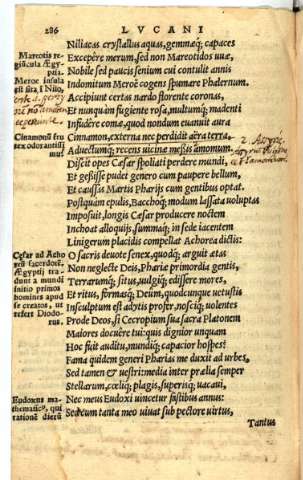 286 LVCANI
Niliacas crystallus aquas, gemmæq; capaces
Excepêre merum, sed non Mareotidos uuæ,
Nobile sed paucis senium cui contulit annis
Indomitum Meroë cogens spumare Phalernum.
Accipiunt certas nardo florente coronas,
Et nunquam fugiente rosa, multumq; madenti
Infudêre comæ, quod nondum euanuit aura
Cinnamon, externa nec perdidit aëra terra,
Aduectumq; recens uicinæ messis amomum.
Discit opes Cæsar spoliati perdere mundi,
Et gessisse pudet genero cum paupere bellum,
Et caussas Martis Pharijs cum gentibus optat.
Postquam epulis, Bacchoq; modum lassata uoluptas
Imposuit, longis Cæsar producere noctem
Inchoat alloquijs, summaq; in sede iacentem
Linigerum placidis compellat Achorea dictis:
O sacris deuote senex, quodq; arguit ætas
Non neglecte Deis, Phariæ primordia gentis,
Terrarumq; situs, uulgiq; edissere mores,
Et ritus, formasq; Deum, quodcunque uetustis
Insculptum est adytis profer, noscíq; uolentes
Prode Deos, si Cecropium sua sacra Platonem
Maiores docuêre tui: quis dignior unquam
Hoc fuit auditu, mundiq; capacior hospes?
Fama quidem generi Pharias me duxit ad urbes,
Sed tamen & uestri: media inter prælia semper
Stellarum, cœliq; plagis, superisq; uacaui,
Nec meus Eudoxi uincetur fastibus annus:
Sed cum tanta meo uiuat sub pectore uirtus,
Tantus
Mareotis re
giuscula Ægy
ptia.
Meroë insula
est sita î Nilo,
Cinamomũ fru
tex odorantissi
mus.
Cæsar ad Acho
reũ sacerdotẽ,
Ægyptij tra
dunt à mundi
initio primos
homines apud
se creatos, ut
refert Diodo-
rus.
Eudoxus ma
thematicꝰ, qui
rationẽ dierũ